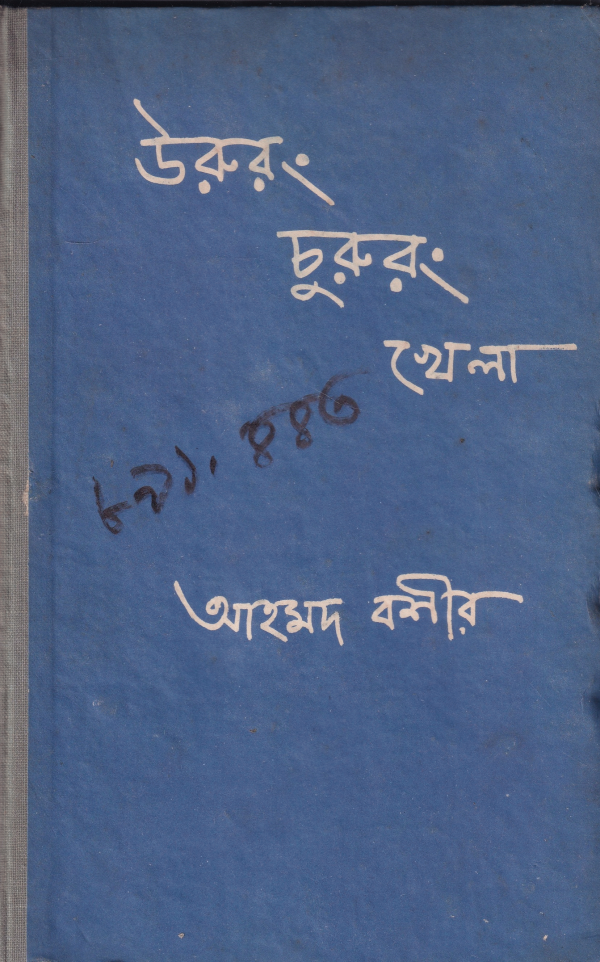 উরুরং
চুরুরং
খেলা
৮৯১.৪৪৩
আহমদ বশীর